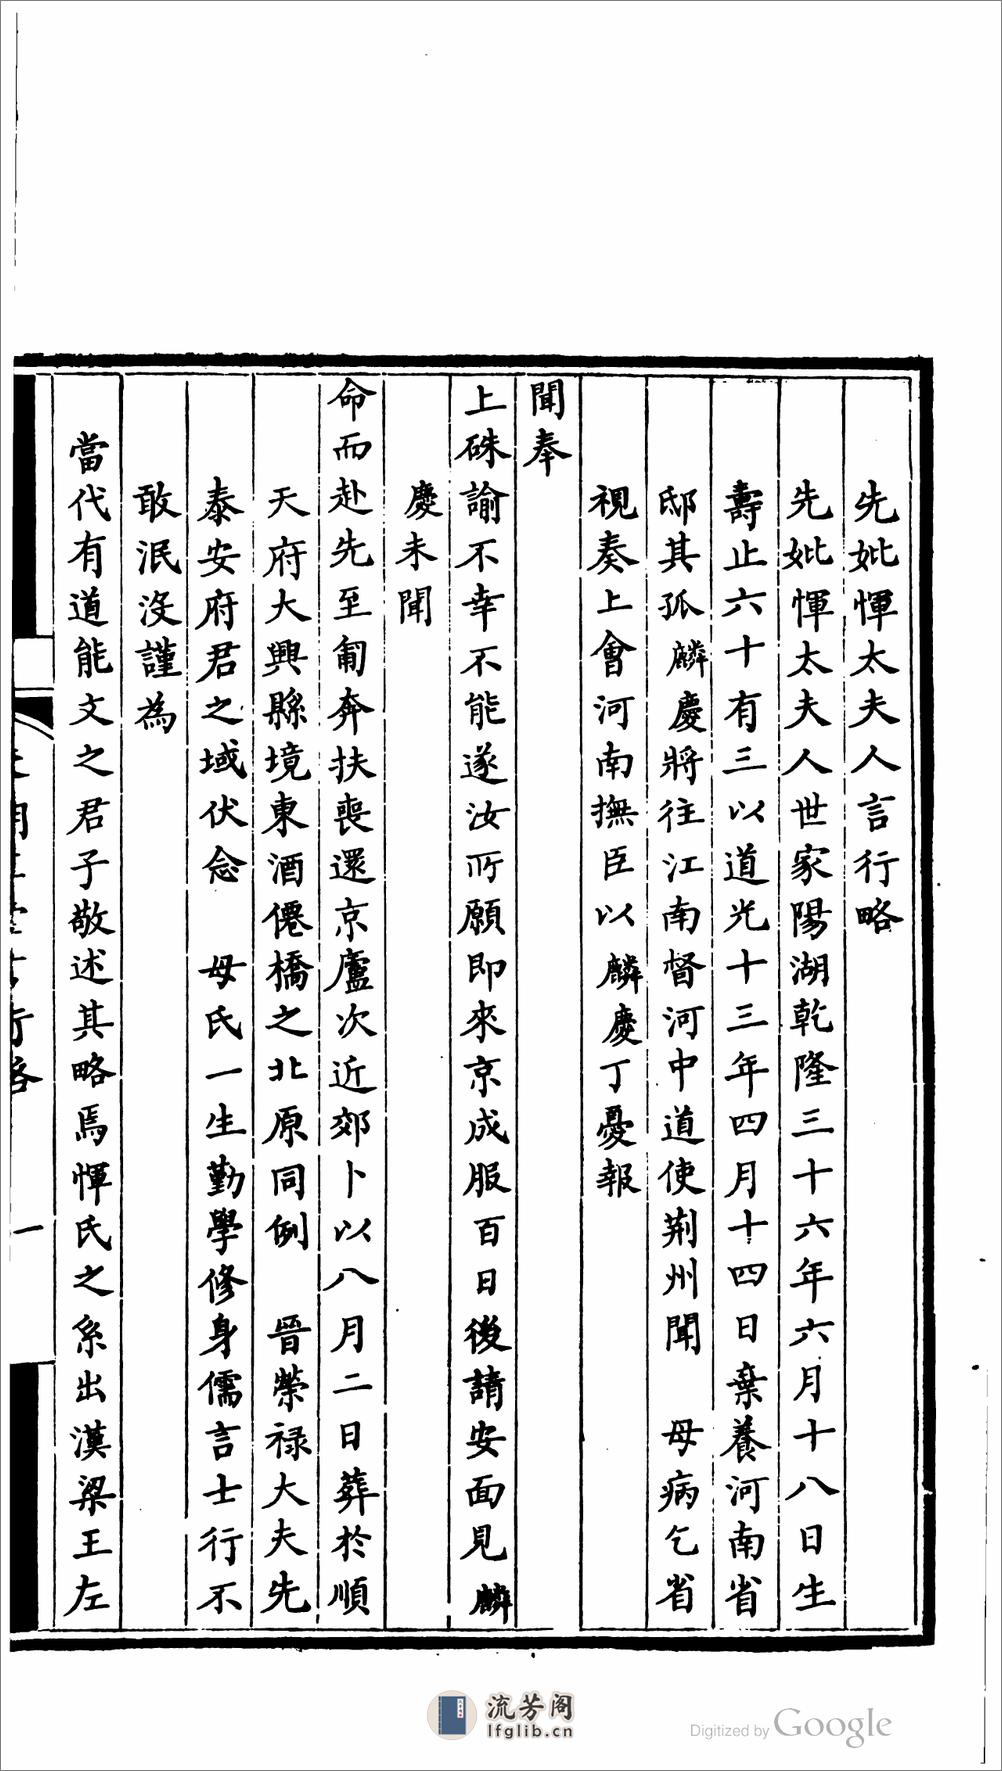 先妣惲太夫人言行略
先妣惲太夫人世家陽湖乾隆三十六年六月十八日生
壽止六十有三以道光十三年四月十四日棄養河南省
邸其孤麟慶將往江南督河中道使荆州聞　母病乞省
視奏上會河南撫臣以麟慶丁憂報
聞奉
上硃諭不幸不能遂汝所願即來京成服百日後請安面見麟
慶未聞
命而赴先至匍奔扶喪還京廬次近郊卜以八月二日葬於順
天府大興縣境東酒僊橋之北原同例　晉榮祿大夫先
泰安府君之域伏念　母氏一生勤學修身儒言士行不
敢泯沒謹為
當代有道能文之君子敬述其略焉惲氏之系出漢梁王左
一
流芳阁
lfglib.cn
Digitized by Google